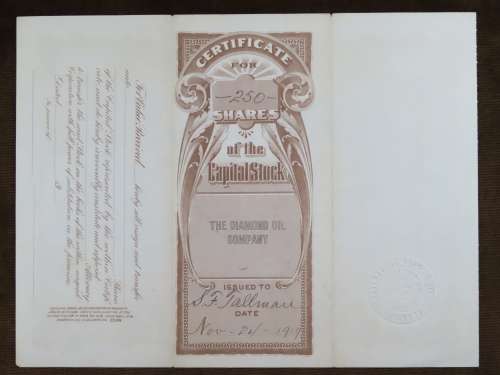 CERTIFICATE
FOR
250
SHARES
of the
Capital Stock
THE DIAMOND OIL
COMPANY
ISSUED TO
S.F. Tallman
DATE
Nov-24-1917
For Value Received hereby sell, assign and transfer
unto
Shares
of the Capital Stock represented by the within Certifi-
cate and do hereby irrevocably constitute and appoint
Attorney
to transfer the said Stock on the books of the within named
Corporation with full power of substitution in the premises.
Dated
In presence of